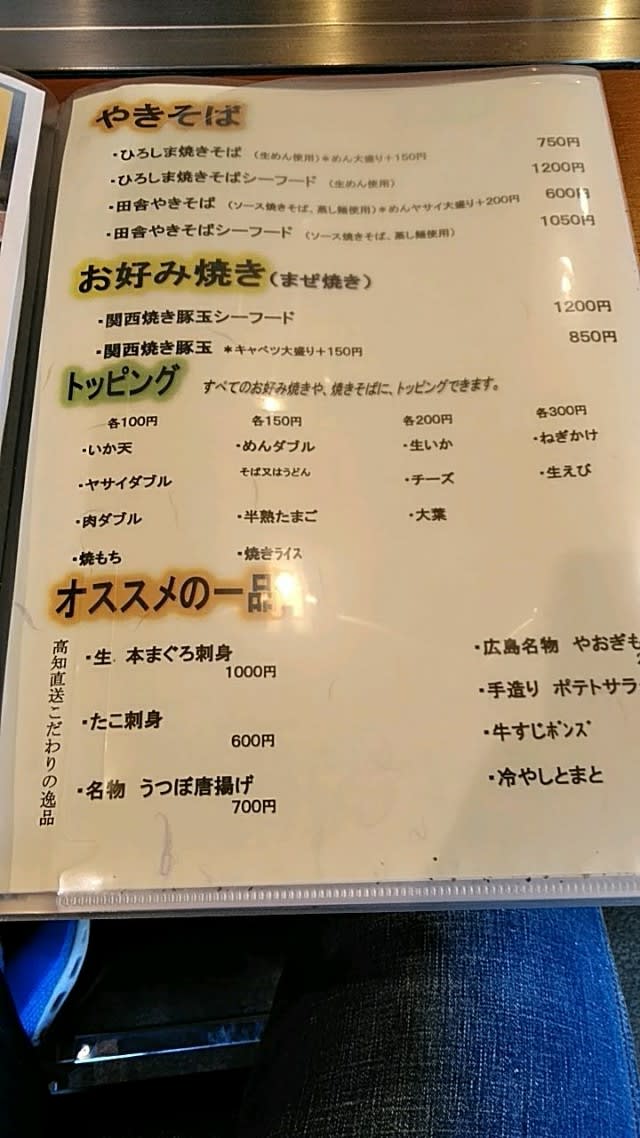 やきそば
・ひろしま焼きそば （生めん使用）＊めん大盛り＋150円 750円
・ひろしま焼きそばシーフード （生めん使用） 1200円
・田舎やきそば （ソース焼きそば、蒸し麺使用）＊めんヤサイ大盛り＋200円 600円
・田舎やきそばシーフード （ソース焼きそば、蒸し麺使用） 1050円
お好み焼き（まぜ焼き）
・関西焼き豚玉シーフード 1200円
・関西焼き豚玉 ＊キャベツ大盛り＋150円 850円
トッピング すべてのお好み焼きや、焼きそばに、トッピングできます。
各100円 各150円 各200円 各300円
・いか天 ・めんダブル ・生いか ・ねぎかけ
・ヤサイダブル そば又はうどん ・チーズ ・生えび
・肉ダブル ・半熟たまご ・大葉
・焼もち ・焼きライス
オススメの一品
高知直送こだわりの逸品
・生 本まぐろ刺身
1000円
・たこ刺身
600円
・名物 うつぼ唐揚げ
700円
・広島名物 やおぎも
・手造り ポテトサラ
・牛すじポンズ
・冷やしとまと